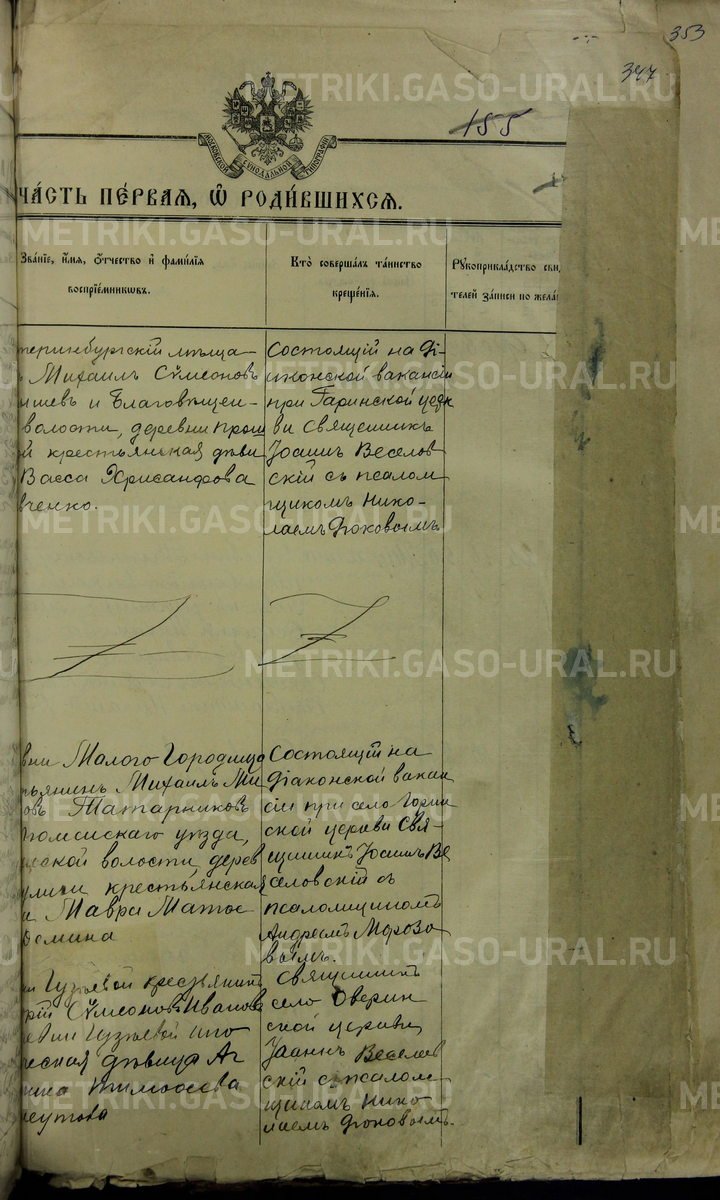 353
347
155
МОСКОВСКОЙ СѴНОДАЛЬНОЙ ТИПОГРАФІИ
ЧА́СТЬ ПЕ́РВАѦ, Ѡ҆ РОДИ́ВШИХСѦ.
Зва́нїе, и҆́мѧ, ѻ҆́тчество и҆ фами́лїѧ
воспрїе́мниковъ.
Кто̀ соверша́лъ та́инство
креще́нїѧ.
Рꙋкоприкла́дство сви
телей за́писи по жела́
теринбургскій мѣща-
Михаилъ Сѵмеоновъ
ышевъ и Благовѣщен-
волости, деревни Прош
й крестьянская дѣви
Васса Хрисанфова
вченко.
Состоящій на Ді-
яконской вакансіи
при Гаринской церк
ви Священникъ
Іоаннъ Веселов
скій съ псалом
щикомъ Нико-
лаемъ Фоковымъ
вни Малого Городища
тьянинъ Михаилъ Ми
овъ Татарниковъ
уѣзда,
ской волости, дерев
крестьянская
Мавра Матѳе
Состоящій на
Діаконской вакан
сіи при село Гарин
ской церкви Свя-
щенникъ Іоаннъ Ве
селовскій съ
псаломщикомъ
Андреемъ Морозо
вымъ.
ни Гузѣевой крестьянинъ
рій Сѵмеоновъ Иванов
евни Гузѣевой
еская дѣвица Аг
Тимоѳеева
Священникъ
село
ской церкви
Іоаннъ Веселов
скій съ псалом-
щикомъ Нико-
лаемъ Фоковымъ.
METRIKI.GASO-URAL.RU